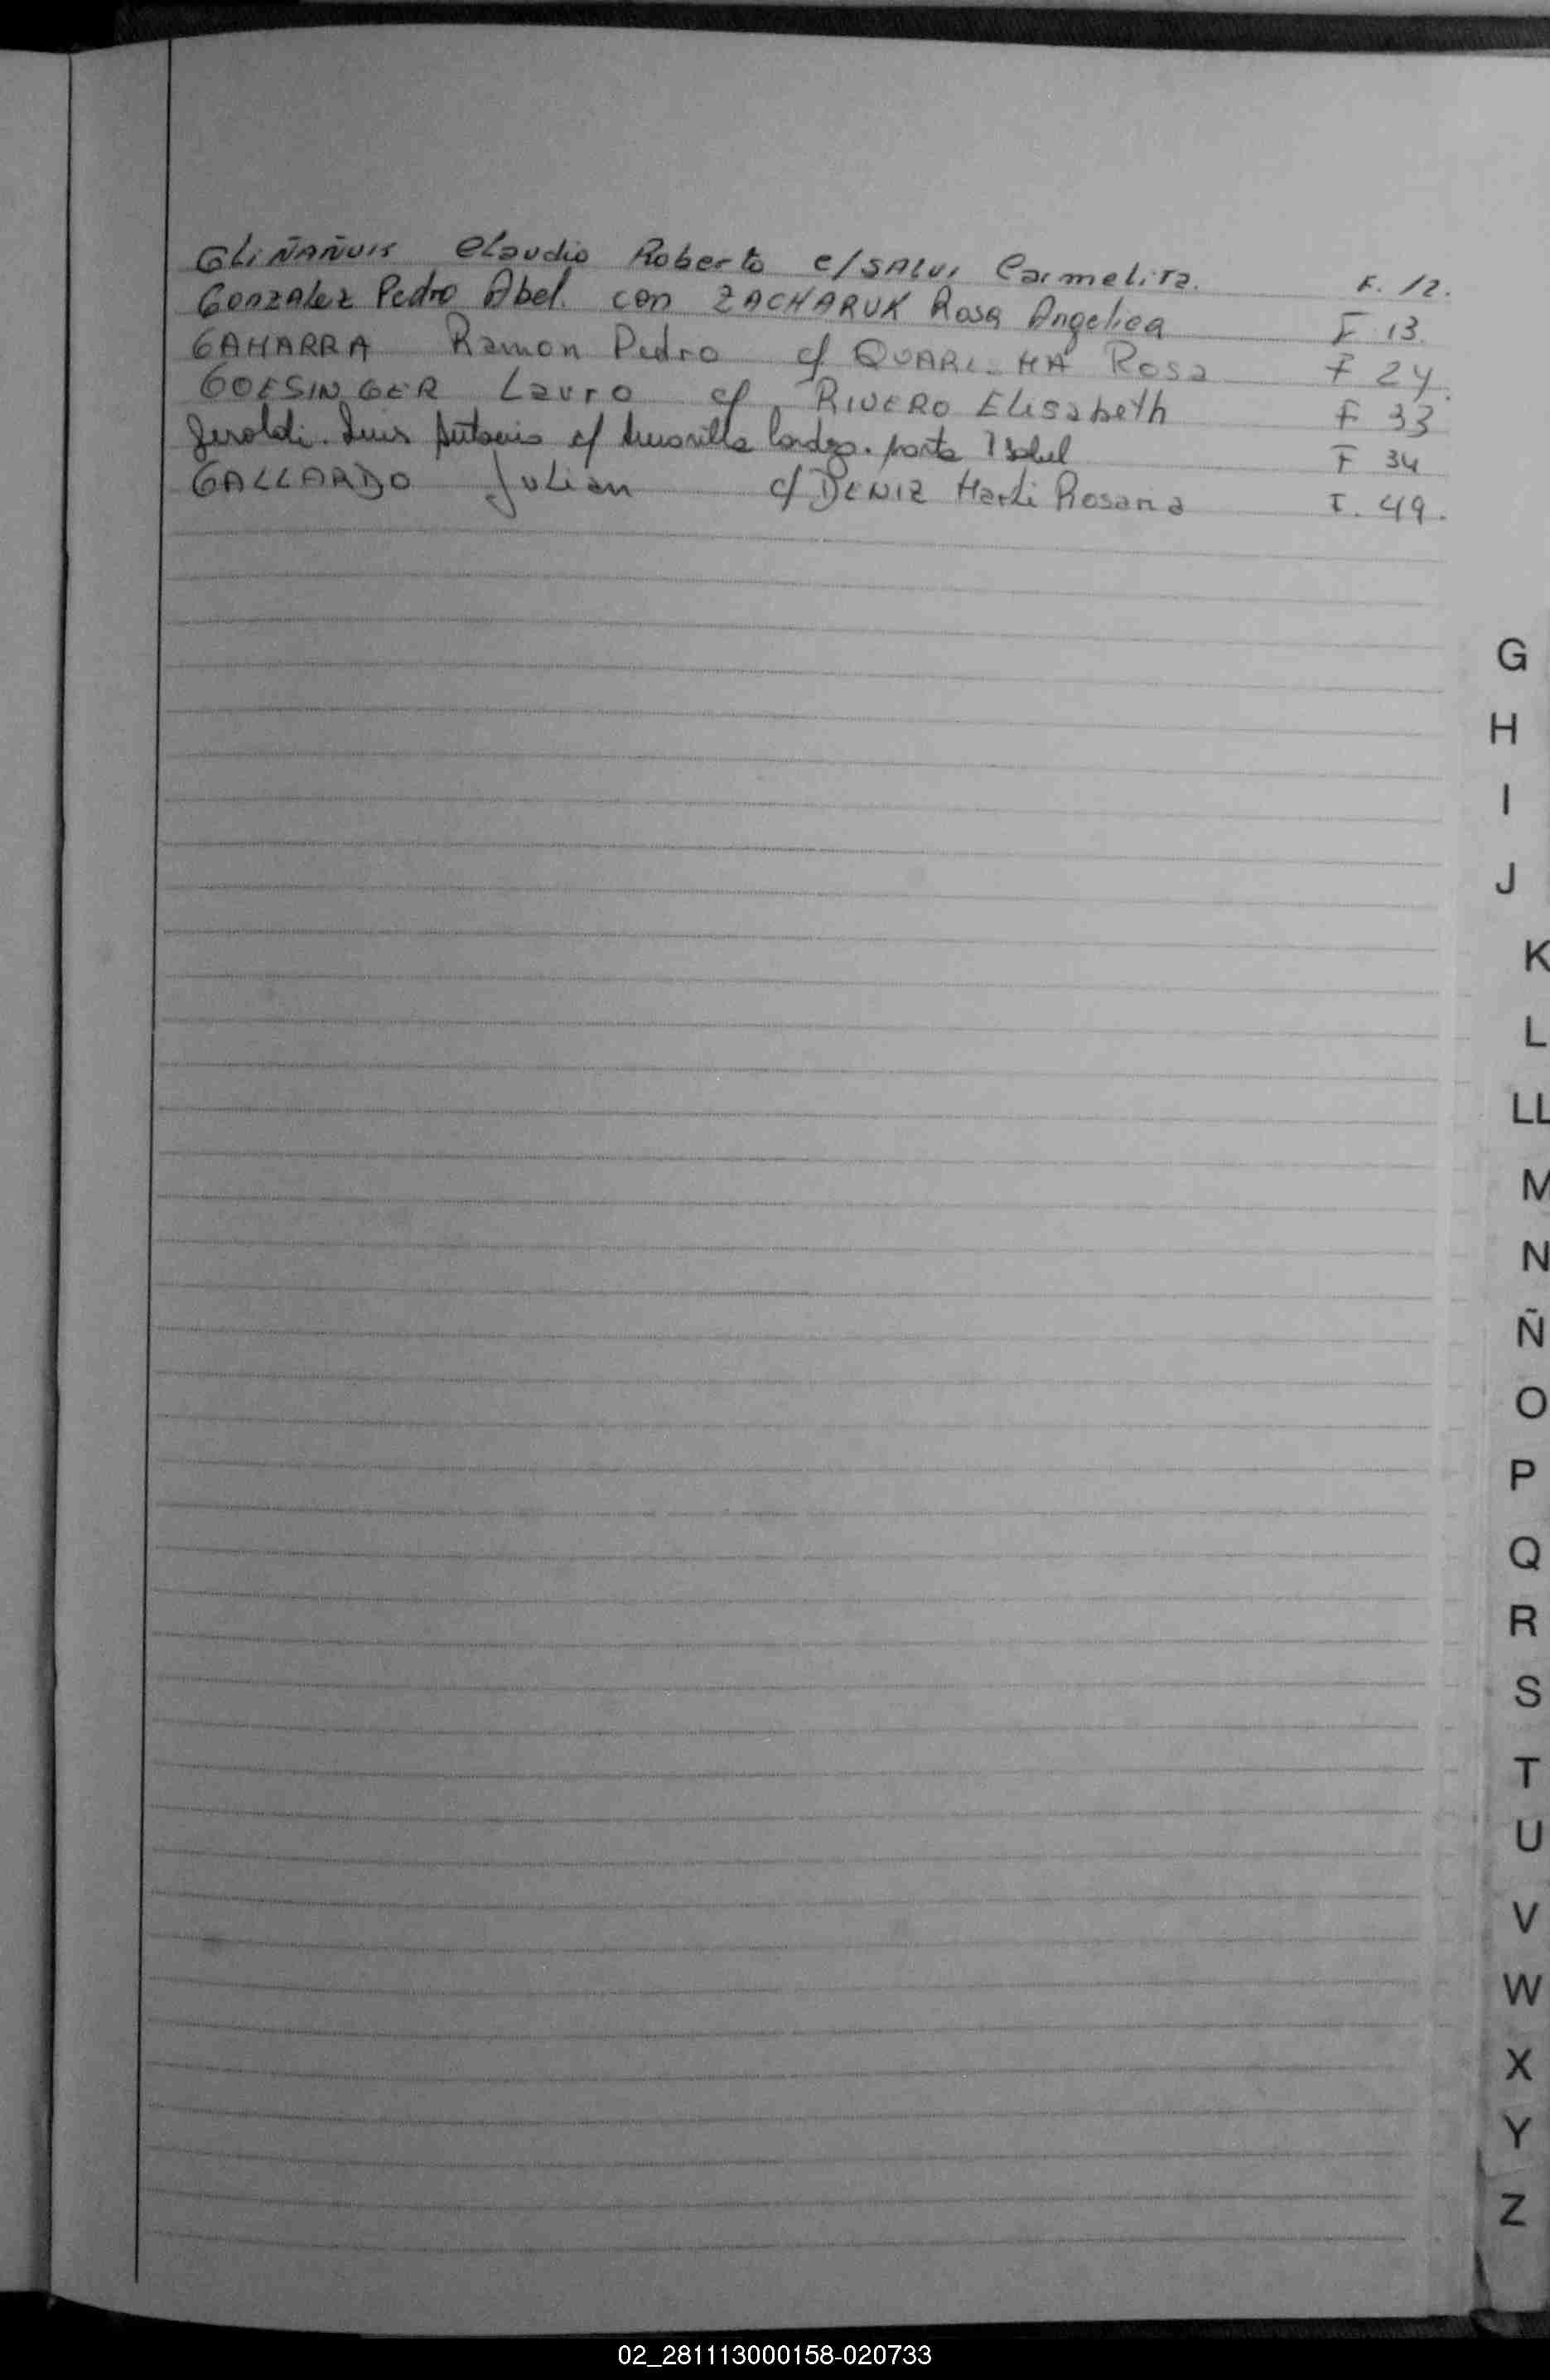 GLiÑAÑUK Claudio Roberto c/SALVI Carmelita. F. 12.
Gonzalez Pedro Abel. con ZACHARUK Rosa Angelica F 13.
GAMARRA Ramon Pedro c/ Rosa F 24.
GOESINGER Lauro c/ RIVERO Elisabeth F 33
Geroldi. Luis Antonio c/ Isabel F 34
GALLARDO Julian c/ DENIZ Marli Rosana F. 49.
G
H
I
J
K
L
LL
M
N
Ñ
O
P
Q
R
S
T
U
V
W
X
Y
Z
02_281113000158-020733